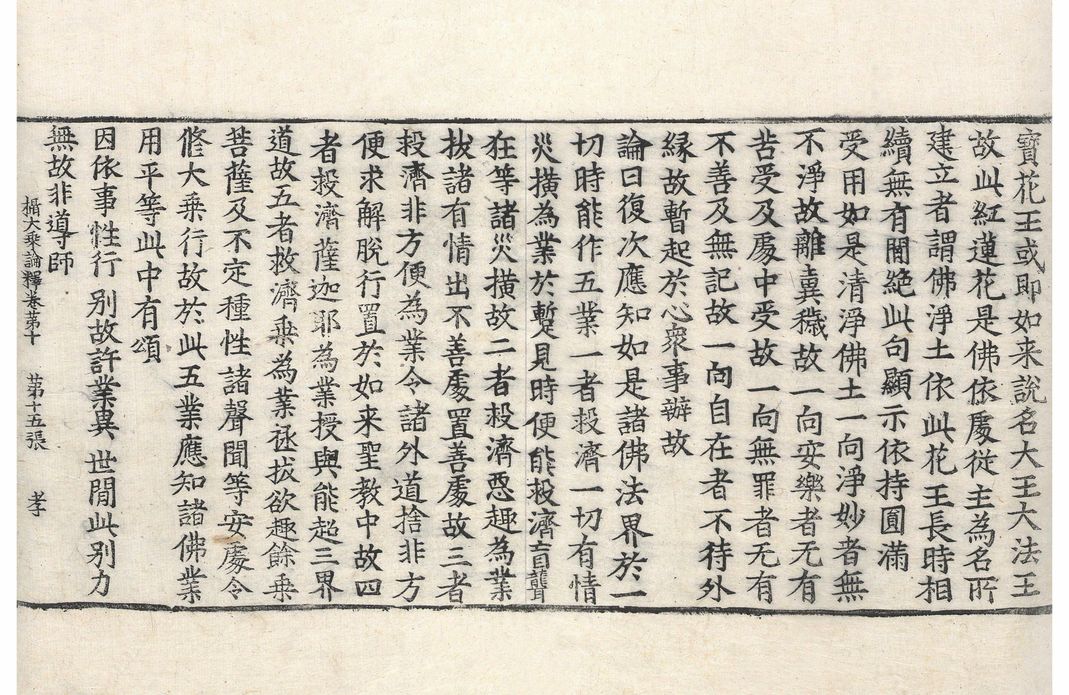 寶花王或即如来説名大王大法王
故此紅蓮花是佛依處従主為名所
建立者謂佛淨土依此花王長時相
續無有間絶此句顯示依持圓滿
受用如是清淨佛土一向淨妙者無
不淨故離糞穢故一向安樂者无有
苦受及處中受故一向無罪者无有
不善及無記故一向自在者不待外
縁故暫起於心衆事辦故
論曰復次應知如是諸佛法界於一
切時能作五業一者救濟一切有情
災横為業於暫見時便能救濟盲聾
狂等諸災横故二者救濟惡趣為業
拔諸有情出不善處置善處故三者
救濟非方便為業令諸外道捨非方
便求解脱行置於如来聖教中故四
者救濟薩迦耶為業授與能超三界
道故五者救濟乘為業拯拔欲趣餘乘
菩薩及不定種性諸聲聞等安處令
修大乘行故於此五業應知諸佛業
用平等此中有頌
因依事性行 別故許業異 世間此別力
無故非導師
攝大乘論釋卷第十 第十五張 孝